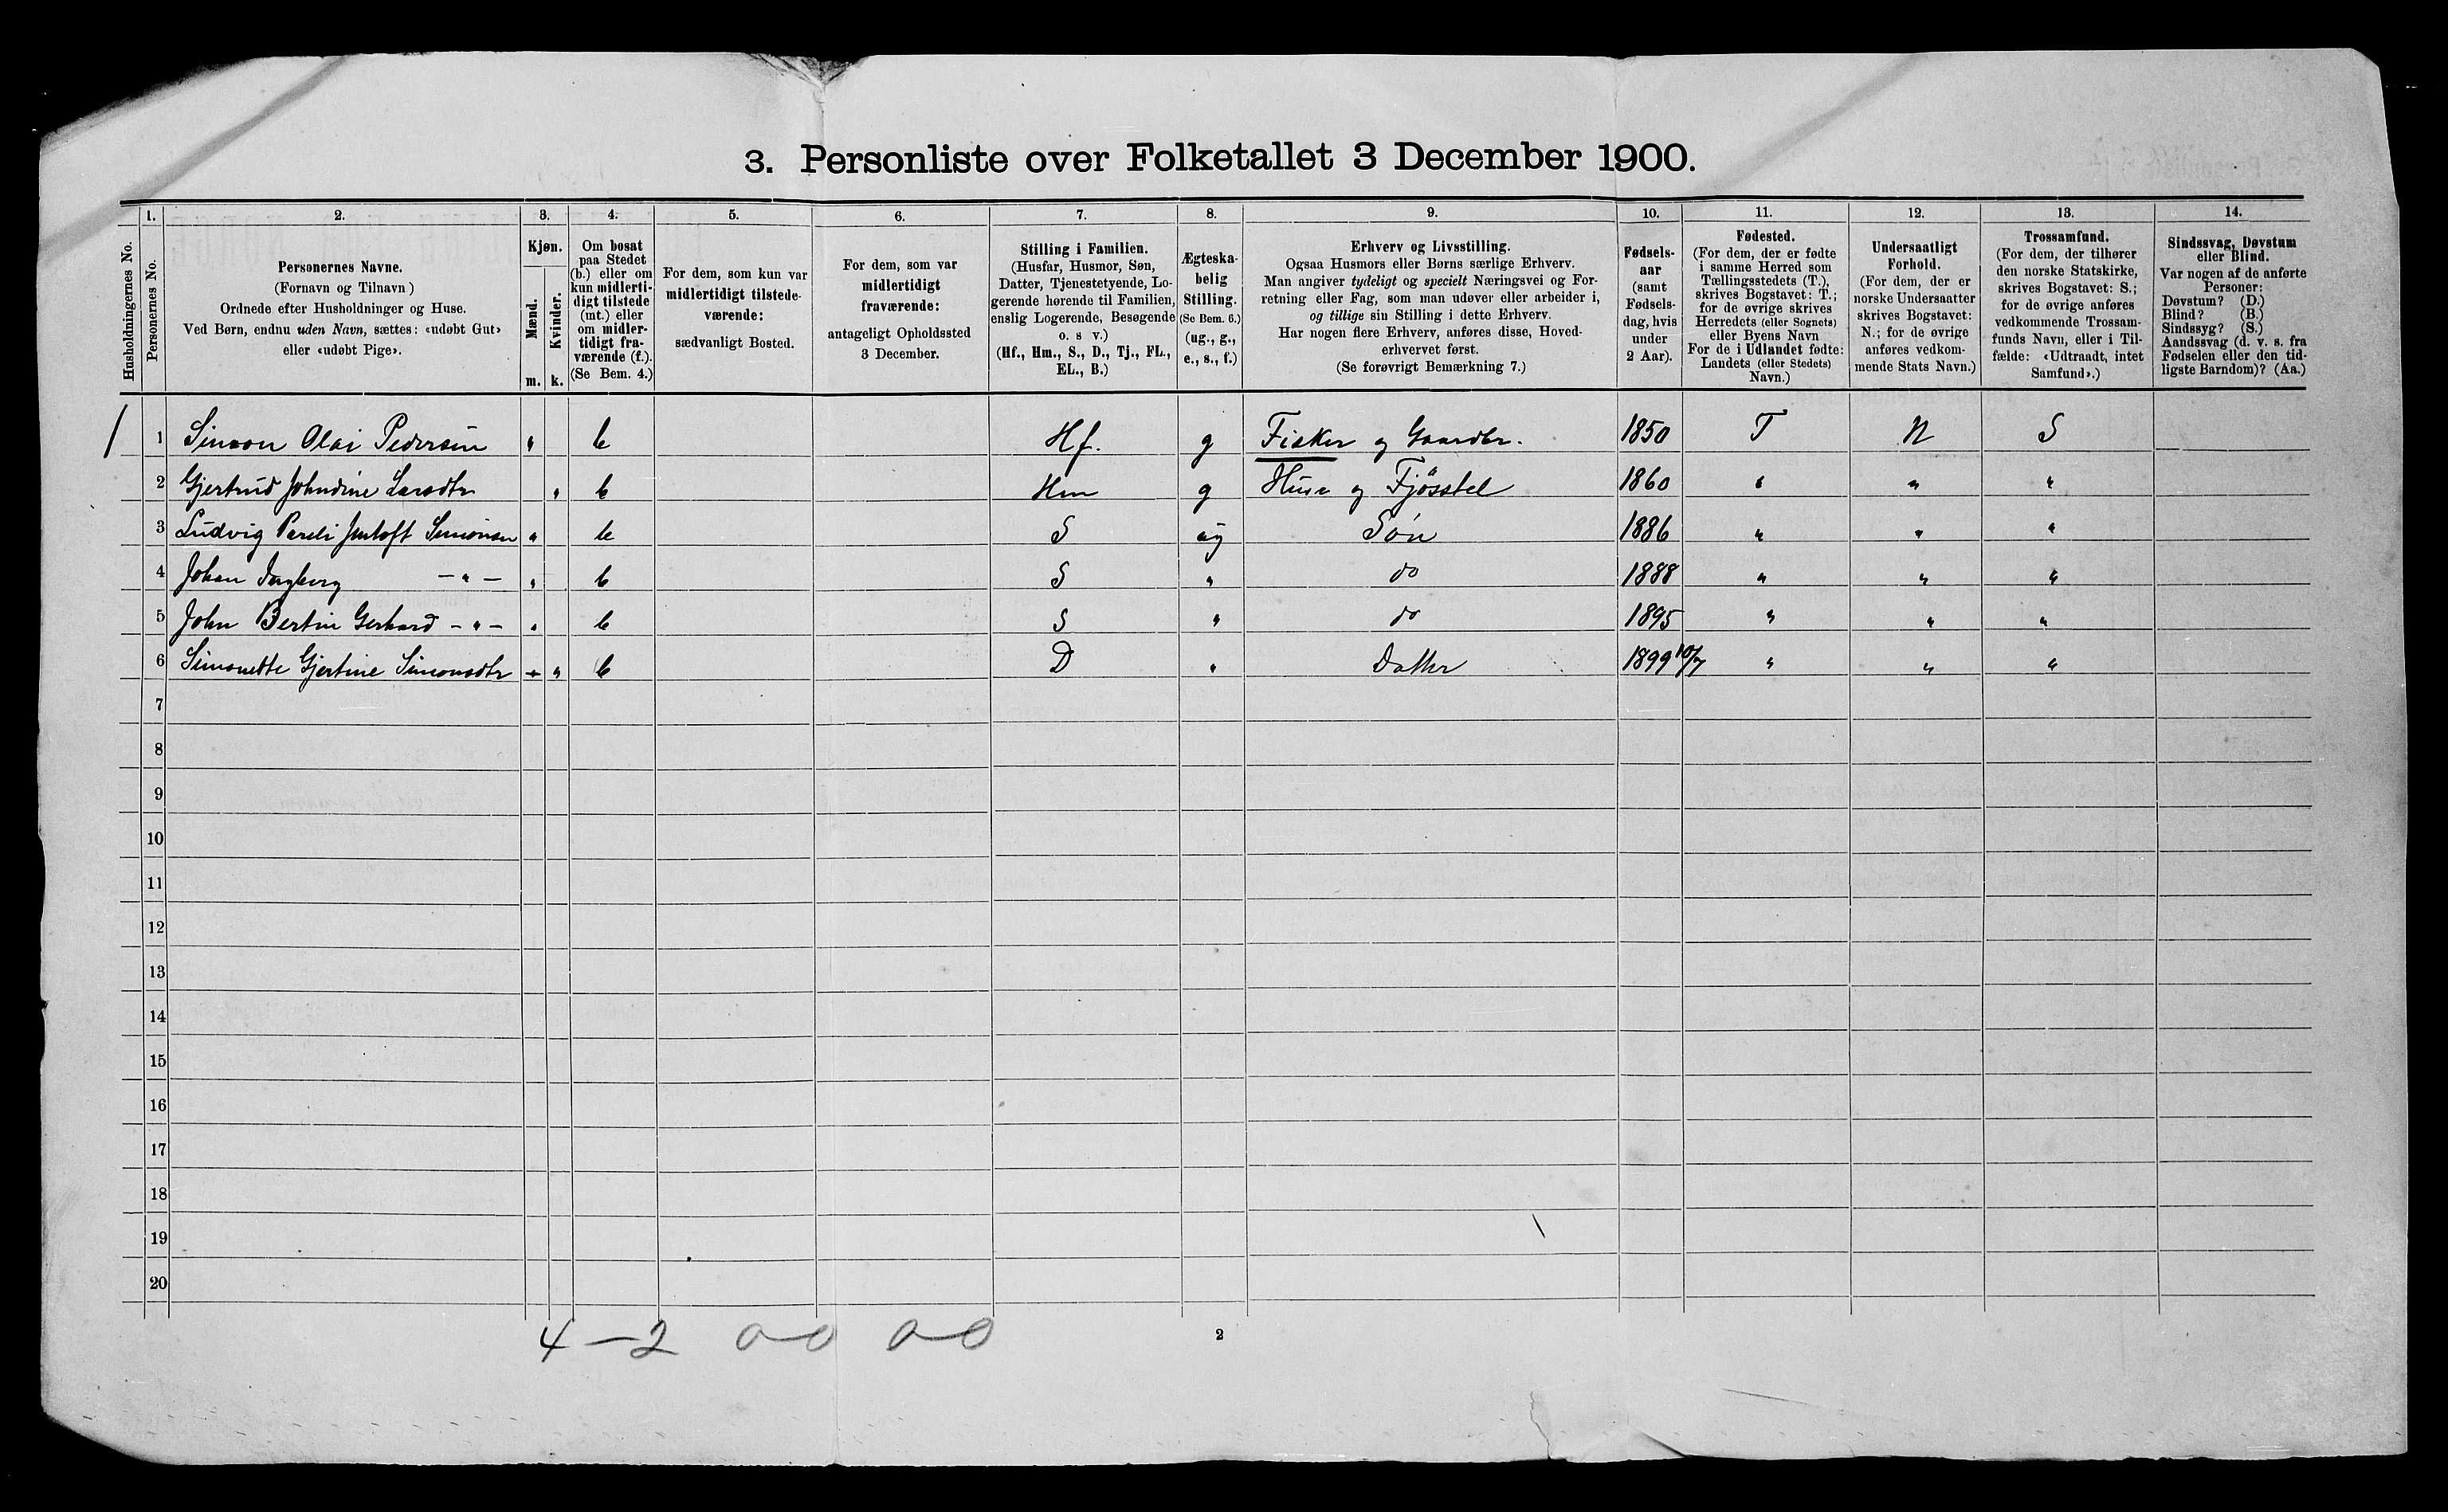 3. Personliste over Folketallet 3 December 1900.
Husholdningernes No.
1.
Personernes No.
2.
Personernes Navne.
(Fornavn og Tilnavn)
Ordnede efter Husholdninger og Huse.
Ved Børn, endnu uden Navn, sættes: «udøbt Gut»
eller «udøbt Pige».
3.
Kjøn.
Mænd.
m.
Kvinder.
k.
4.
Om bosat
paa Stedet
(b.) eller om
kun midlerti-
digt tilstede
(mt.) eller
om midler-
tidigt fra-
værende (f.).
(Se Bem. 4.)
5.
For dem, som kun var
midlertidigt tilstede-
værende:
sædvanligt Bosted.
6.
For dem, som var
midlertidigt
fraværende:
antageligt Opholdssted
3 December.
7.
Stilling i Familien.
(Husfar, Husmor, Søn,
Datter, Tjenestetyende, Lo-
gerende hørende til Familien,
enslig Logerende, Besøgende
o. s v.)
(Hf., Hm., S., D., Tj., FL.,
EL., B.)
8.
Ægteska-
belig
Stilling.
(Se Bem. 6.)
(ug., g.,
e., s., f.)
9.
Erhverv og Livsstilling.
Ogsaa Husmors eller Børns særlige Erhverv.
Man angiver tydeligt og specielt Næringsvei og For-
retning eller Fag, som man udøver eller arbeider i,
og tillige sin Stilling i dette Erhverv.
Har nogen flere Erhverv, anføres disse, Hoved-
erhvervet først.
(Se forøvrigt Bemærkning 7.)
10.
Fødsels-
aar
(samt
Fødsels-
dag, hvis
under
2 Aar).
11.
Fødested.
(For dem, der er fødte
i samme Herred som
Tællingsstedets (T.),
skrives Bogstavet: T.;
for de øvrige skrives
Herredets (eller Sognets)
eller Byens Navn
For de i Udlandet fødte:
Landets (eller Stedets)
Navn.)
12.
Undersaatligt
Forhold.
(For dem, der er
norske Undersaatter
skrives Bogstavet:
N.; for de øvrige
anføres vedkom-
mende Stats Navn.)
13.
Trossamfund.
(For dem, der tilhører
den norske Statskirke,
skrives Bogstavet: S.;
for de øvrige anføres
vedkommende Trossam-
funds Navn, eller i Til-
fælde: «Udtraadt, intet
Samfund».)
14.
Sindssvag, Døvstum
eller Blind.
Var nogen af de anførte
Personer:
Døvstum? (D.)
Blind? (B.)
Sindssyg? (S.)
Aandssvag (d. v. s. fra
Fødselen eller den tid-
ligste Barndom)? (Aa.)
1 1 Simon Olai Pedersen " b Hf. g Fisker og Gaardbr. 1850 T N S
2 Gjertrud Johndine Larsdtr " b Hm g Hus og Fjösstel 1860 " " "
3 Ludvig Pareli Simonsen " b S ug Søn 1886 " " "
4 Johan Ingberg — " — " b S " do 1888 " " "
5 John Bertin Gerhard — " — " b S " do 1895 " " "
6 Simonette Gjertine Simonsdtr " b D " Datter 1899 10/7 " " "
7
8
9
10
11
12
13
14
15
16
17
18
19
20
4 — 2 0-0 0-0
2